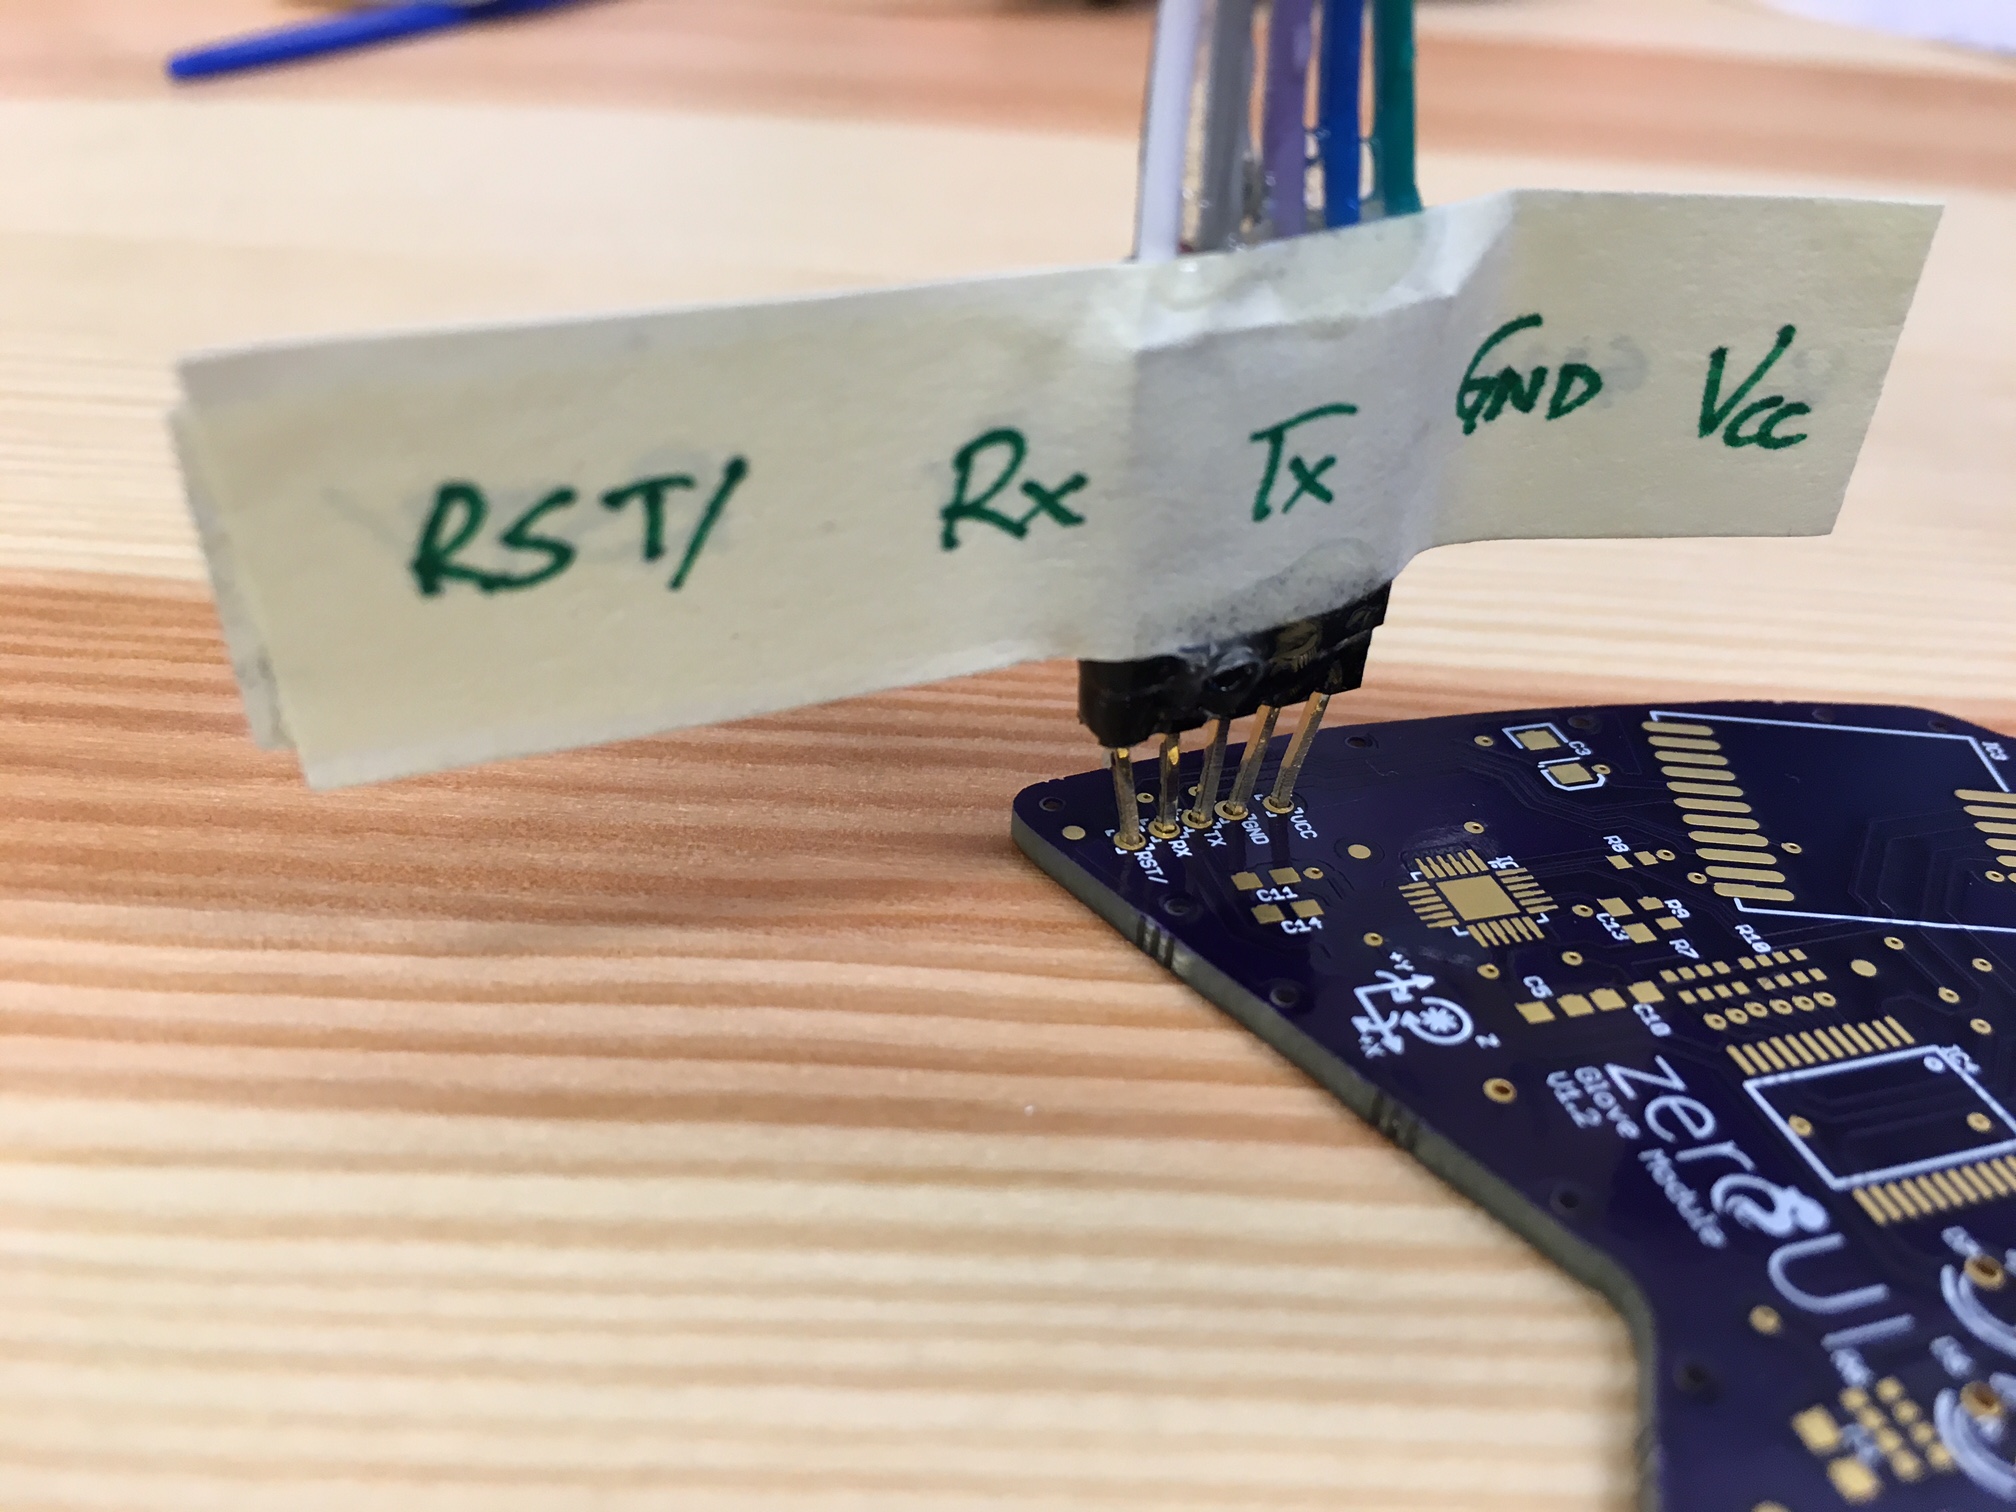 RST/ Rx Tx GND Vcc
RST/
RX
TX
GND
VCC
C3
IC3
R8
C11
C14
R9
C13
R7
R10
C5
C10
+Y
+X
Z
ZeroUI
Glove Module
V1.2